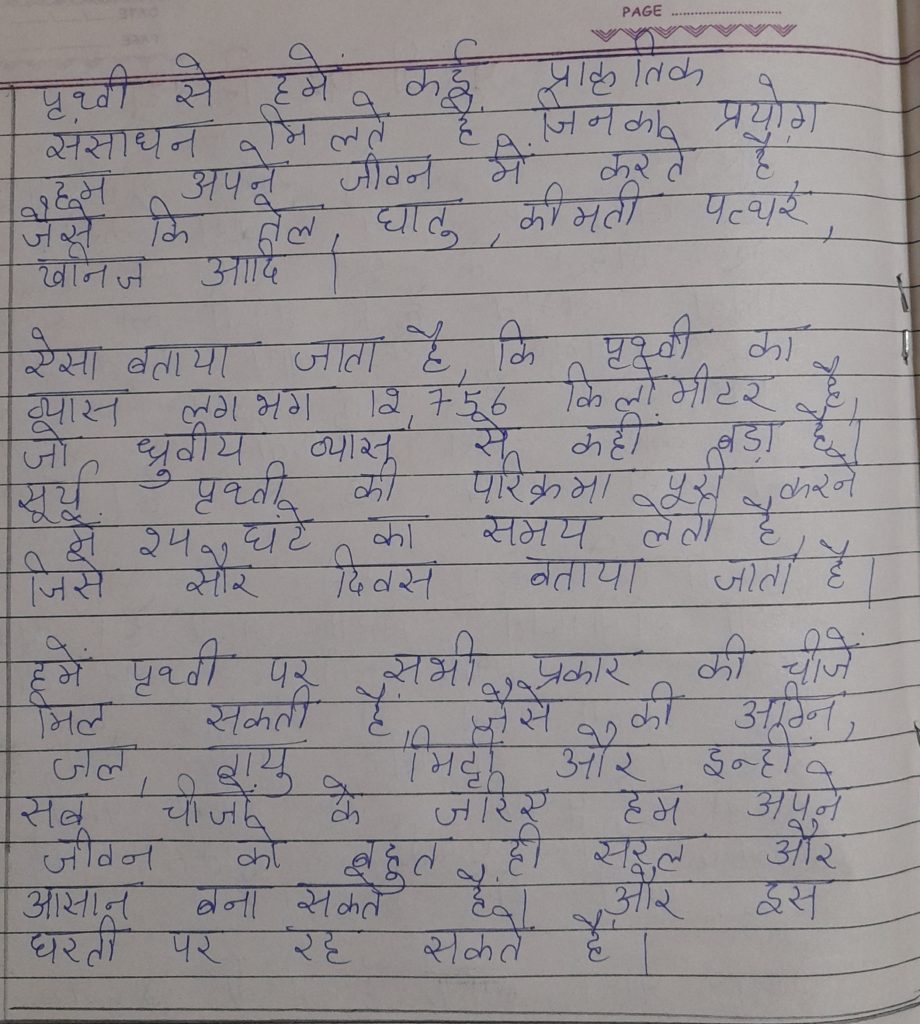 PAGE
पृथ्वी से हमें कई प्राकृतिक
संसाधन मिलते है जिनका प्रयोग
हम अपने जीवन में करते है,
जैसे कि तेल, धातु, कीमती पत्थर,
खनिज आदि।
ऐसा बताया जाता है, कि पृथ्वी का
व्यास लगभग 12,756 किलोमीटर है,
जो ध्रुवीय व्यास से कही बड़ा है।
सूर्य पृथ्वी की परिक्रमा पूरी करने
में 24 घंटे का समय लेती है,
जिसे सौर दिवस बताया जाता है।
हमें पृथ्वी पर सभी प्रकार की चीजें
मिल सकती है, जैसे की अग्नि,
जल, वायु मिट्टी और इन्ही
सब चीजों के जरिए हम अपने
जीवन को बहुत ही सरल और
आसान बना सकते है। और इस
धरती पर रह सकते है।